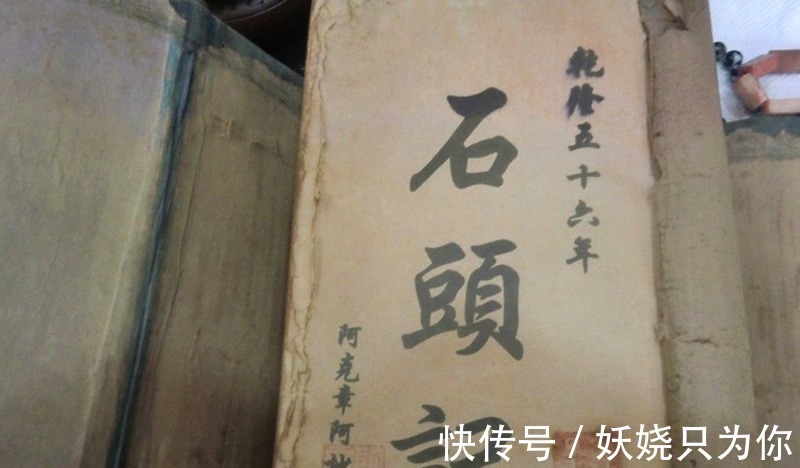 乾隆五十六年
石頭記
阿克章阿
快传号 / 妖娆只为你